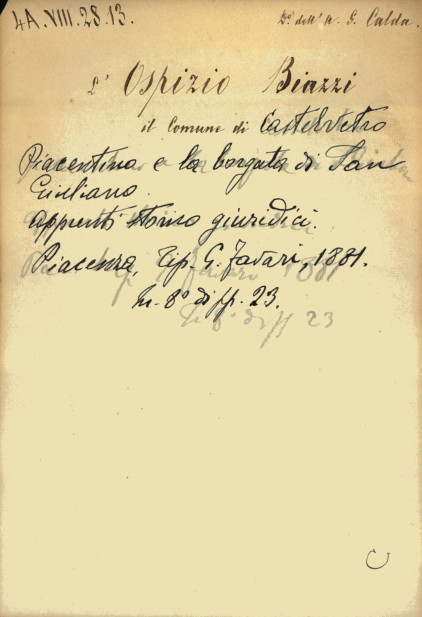 4A.VIII.28.13.
D.º dell'A. G. Calda.
L' Ospizio Biazzi
il Comune di Castelvetro
Piacentino e la borgata di San
Giuliano.
Appunti storico giuridici.
Piacenza, Tip. G. Tedeschi, 1881.
In-8º di pp. 23.